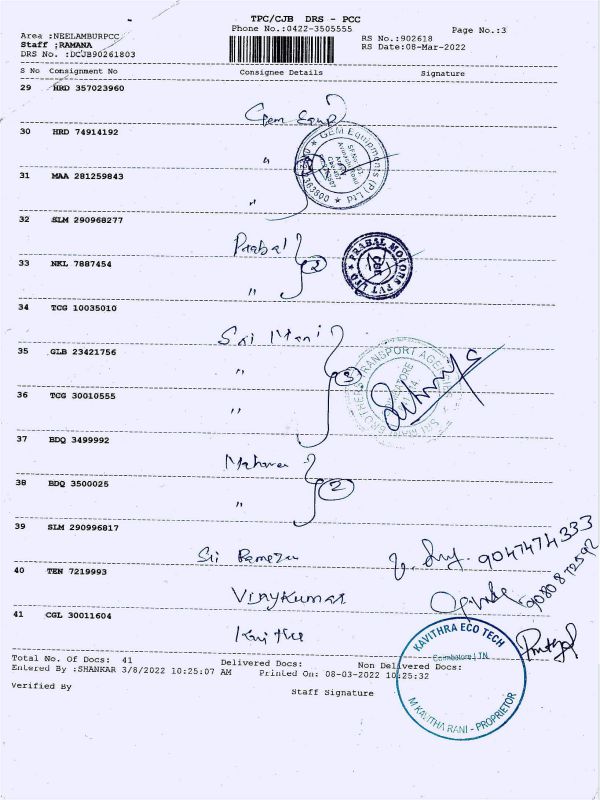 TPC/CJB DRS - PCC
Phone No.:0422-3505555
Page No.:3
Area :NEELAMBURPCC
Staff :RAMANA
DRS No. :DCJB90261803
RS No.:902618
RS Date:08-Mar-2022
S No Consignment No Consignee Details Signature
29 HRD 357023960
Gem Equip
30 HRD 74914192
"
GEM Equipments (P) Ltd
31 MAA 281259843
"
32 SLM 290968277
Prabal
2
PRABAL MOTORS PVT LTD
CBE
33 NKL 7887454
"
34 TCG 10035010
Sri Mani
35 GLB 23421756
"
3
SRI MANI BROTHERS TRANSPORT AGENCIES
36 TCG 30010555
"
37 BDQ 3499992
38 BDQ 3500025
2
"
39 SLM 290996817
Sri
9047474333
40 TEN 7219993
VIJAYKUMAR
41 CGL 30011604
KAVITHRA ECO TECH
Coimbatore | TN
M KAVITHA RANI - PROPRIETOR
Total No. Of Docs: 41 Delivered Docs: Non Delivered Docs:
Entered By :SHANKAR 3/8/2022 10:25:07 AM Printed On: 08-03-2022 10:25:32
Verified By Staff Signature